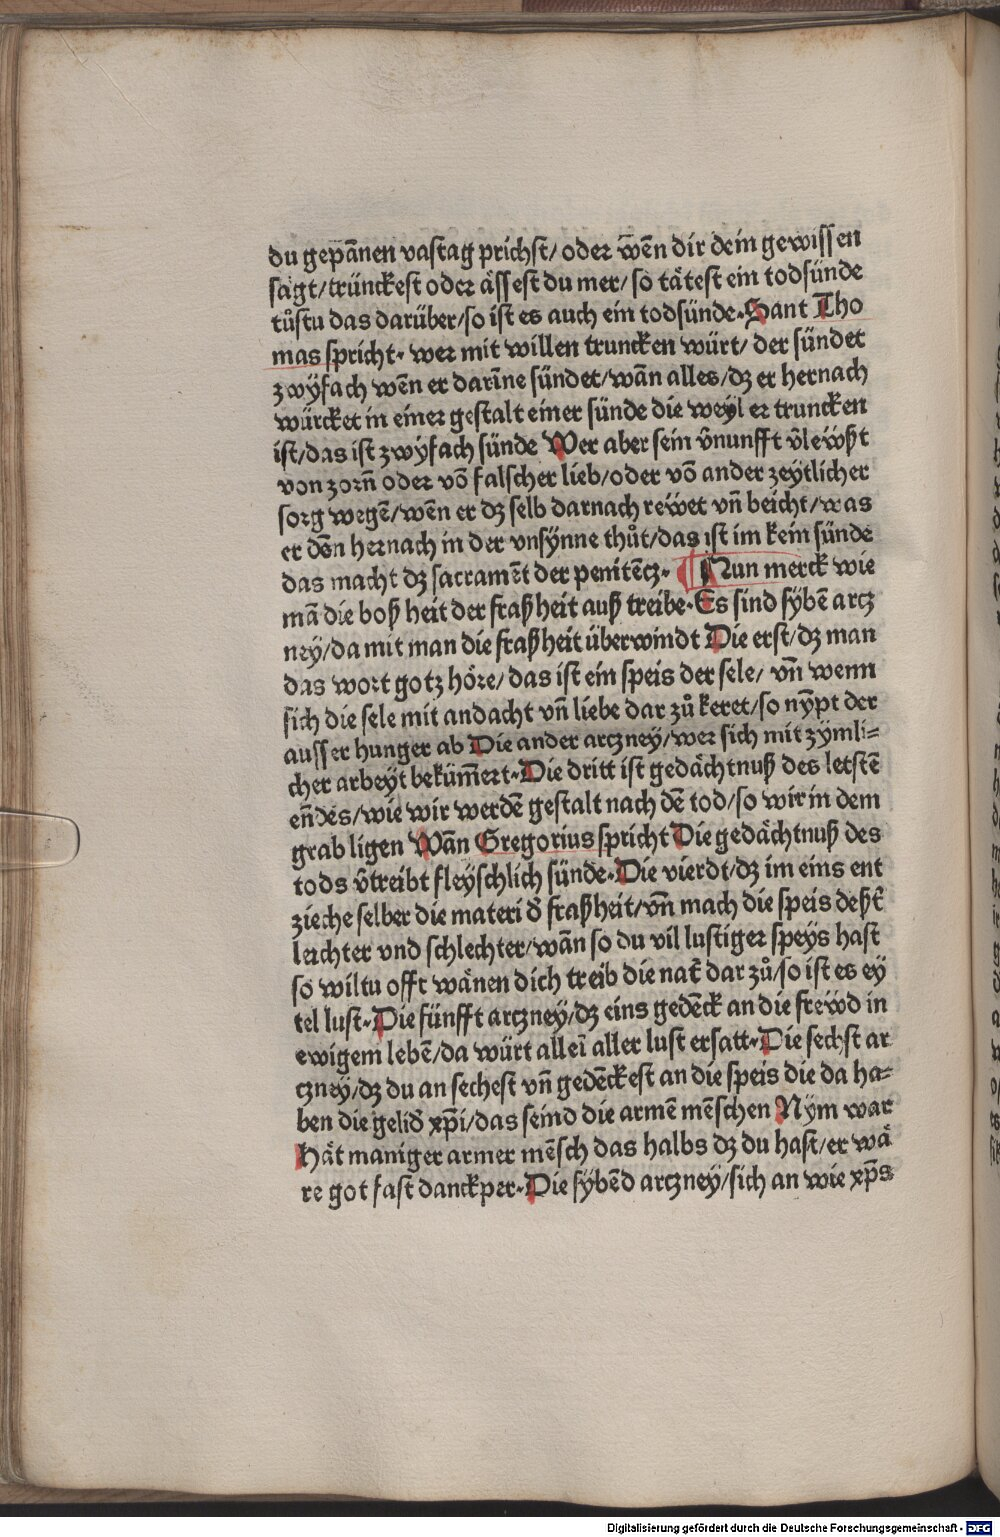 du gepānen vastag prichst/ oder wēn dir dein gewissen
sägt/trünckest oder ässest du mer/ so tätest ein todsünde
tůstu das darüber/so ist es auch ein todsünde. Sant Tho
mas spricht. wer mit willen truncken würt/ der sündet
zwÿfach wēn er darīne sündet/wān alles/dz er hernach
würcket in einer gestalt einer sünde die weÿl er truncken
ist/das ist zwÿfach sünde Wer aber sein v̄nunfft v̄lewßt
von zorn̄ oder vō falscher lieb/oder vō ander zeÿtlicher
sorg wegē/wēn er dz selb darnach rewet vn̄ beicht/was
er dēn hernach in der vnsÿnne thůt/das ist im kein sünde
das macht dz sacramēt der penitēcz. ¶ Nun merck wie
mā die boßheit der fraßheit auß treibe. Es sind sÿbē arcz
neÿ/da mit man die fraßheit überwindt Die erst/dz man
das wort gotz höre/das ist ein speis der sele/ vn̄ wenn
sich die sele mit andacht vn̄ liebe dar zů keret/so nÿpt der
ausser hunger ab Die ander arczneÿ/wer sich mit zÿmli=
cher arbeÿt bekūmert. Die dritt ist gedächtnuß des letstē
en̄des/wie wir werdē gestalt nach dē tod/so wir in dem
grab ligen Wān Gregorius spricht Die gedächtnuß des
tods v̄treibt fleÿschlich sünde. Die vierdt/dz im eins ent
zieche selber die materi d̄ fraßheit/vn̄ mach die speis deßt̄
leichter vnd schlechter/wān so du vil lustiger speÿs hast
so wiltu offt wänen dich treib die nat̄ dar zů/so ist es eÿ
tel lust. Die fünfft arczneÿ/dz eins gedēck an die frewd in
ewigem lebē/da würt alleī aller lust ersatt. Die sechst ar
czneÿ/dz du an sechest vn̄ gedēckest an die speis die da ha=
ben die gelid̄ xp̄i/das seind die armē mēschen Nÿm war
Hät maniger armer mēsch das halbs dz du hast/er wä
re got fast danckper. Die sÿbēd arczneÿ/sich an wie xp̄s
Digitalisierung gefördert durch die Deutsche Forschungsgemeinschaft - DFG